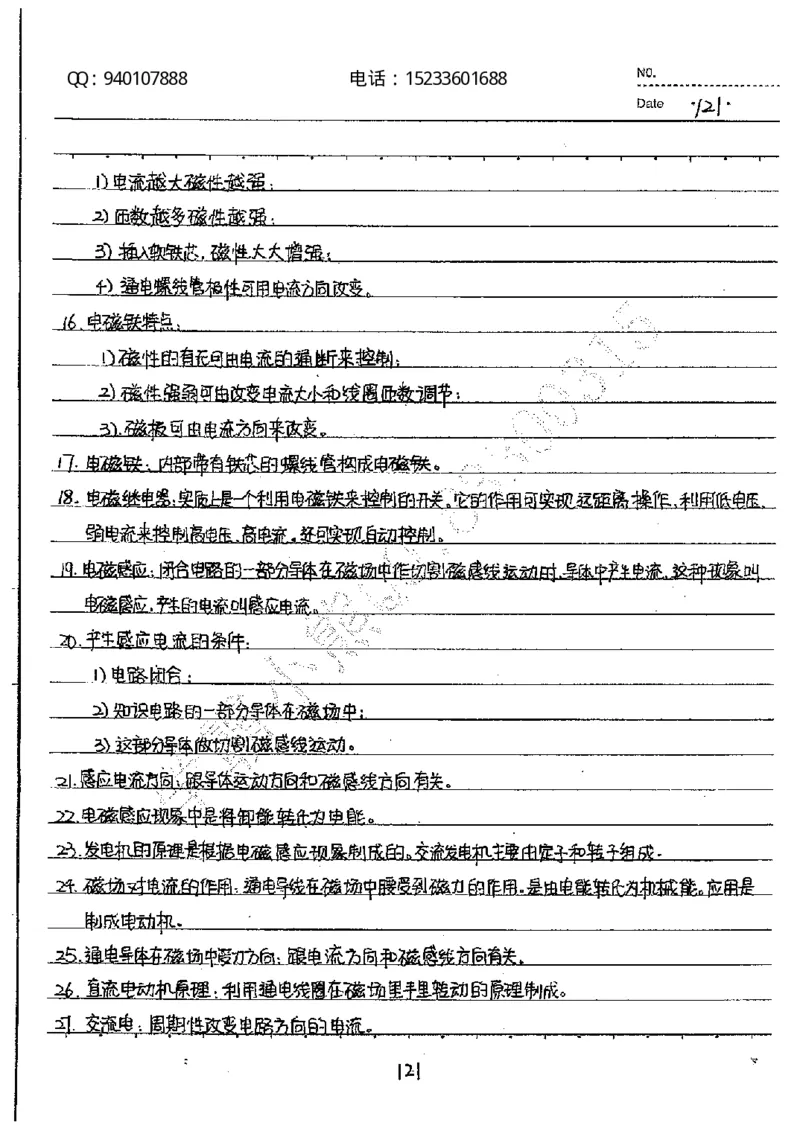 QQ：940107888 电话：15233601688 NO.
Date ·121·
1) 电流越大磁性越强；
2) 匝数越多磁性越强；
3) 插入软铁芯，磁性大大增强；
4) 通电螺线管极性可用电流方向改变。
16. 电磁铁特点：
1) 磁性的有无可由电流的通断来控制；
2) 磁性强弱可由改变电流大小和线圈匝数调节；
3). 磁极可由电流方向来改变。
17. 电磁铁：内部带有铁芯的螺线管构成电磁铁。
18. 电磁继电器：实质上是一个利用电磁铁来控制的开关。它的作用可实现远距离操作，利用低电压、
弱电流来控制高电压、高电流。还可实现自动控制。
19. 电磁感应：闭合电路的一部分导体在磁场中作切割磁感线运动时，导体中产生电流，这种现象叫
电磁感应，产生的电流叫感应电流。
20. 产生感应电流的条件：
1) 电路闭合；
2) 知识电路的一部分导体在磁场中；
3) 这部分导体做切割磁感线运动。
21. 感应电流方向：跟导体运动方向和磁感线方向有关。
22. 电磁感应现象中是将卸能转化为电能。
23. 发电机的原理是根据电磁感应现象制成的。交流发电机主要由定子和转子组成.
24. 磁场对电流的作用：通电导线在磁场中腰受到磁力的作用。是由电能转化为机械能。应用是
制成电动机。
25. 通电导体在磁场中受力方向：跟电流方向和磁感线方向有关。
26. 直流电动机原理：利用通电线圈在磁场里手里转动的原理制成。
27. 交流电：周期性改变电路方向的电流。
121